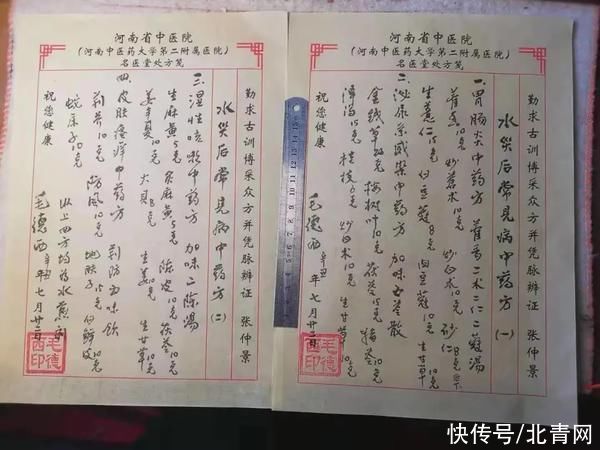 河南省中医院
(河南中医药大学第二附属医院)
名医堂处方笺
勤求古训博采众方并凭脉辨证 张仲景
水灾后常见病中药方(一)
一.胃肠炎中药方 藿香二术二仁二蔻汤
藿香10克 炒苍术10克 炒白术10克 砂仁8克
生薏仁15克 白豆蔻8克 肉豆蔻10克 生甘草10克
二.泌尿系感染中药方 加味五苓散
金钱草 茯苓15克 猪苓10克
泽泻15克 桂枝6克 炒白术10克 生甘草10克
祝您健康 毛德西 辛丑年七月廿二
毛德西印
河南省中医院
(河南中医药大学第二附属医院)
名医堂处方笺
勤求古训博采众方并凭脉辨证 张仲景
水灾后常见病中药方(二)
三.湿性咳嗽中药方 加味二陈汤
生麻黄5克 炙麻黄5克 陈皮10克 茯苓10克
姜半夏10克 大贝8克 生姜10克 生甘草10克
四.皮肤瘙痒中药方 荆防五味饮
荆芥10克 防风10克 地肤子15克 白鲜皮10克
蛇床子10克 以上四方均为水煎剂
祝您健康 毛德西 辛丑年七月廿二
毛德西印
快传号/北青网